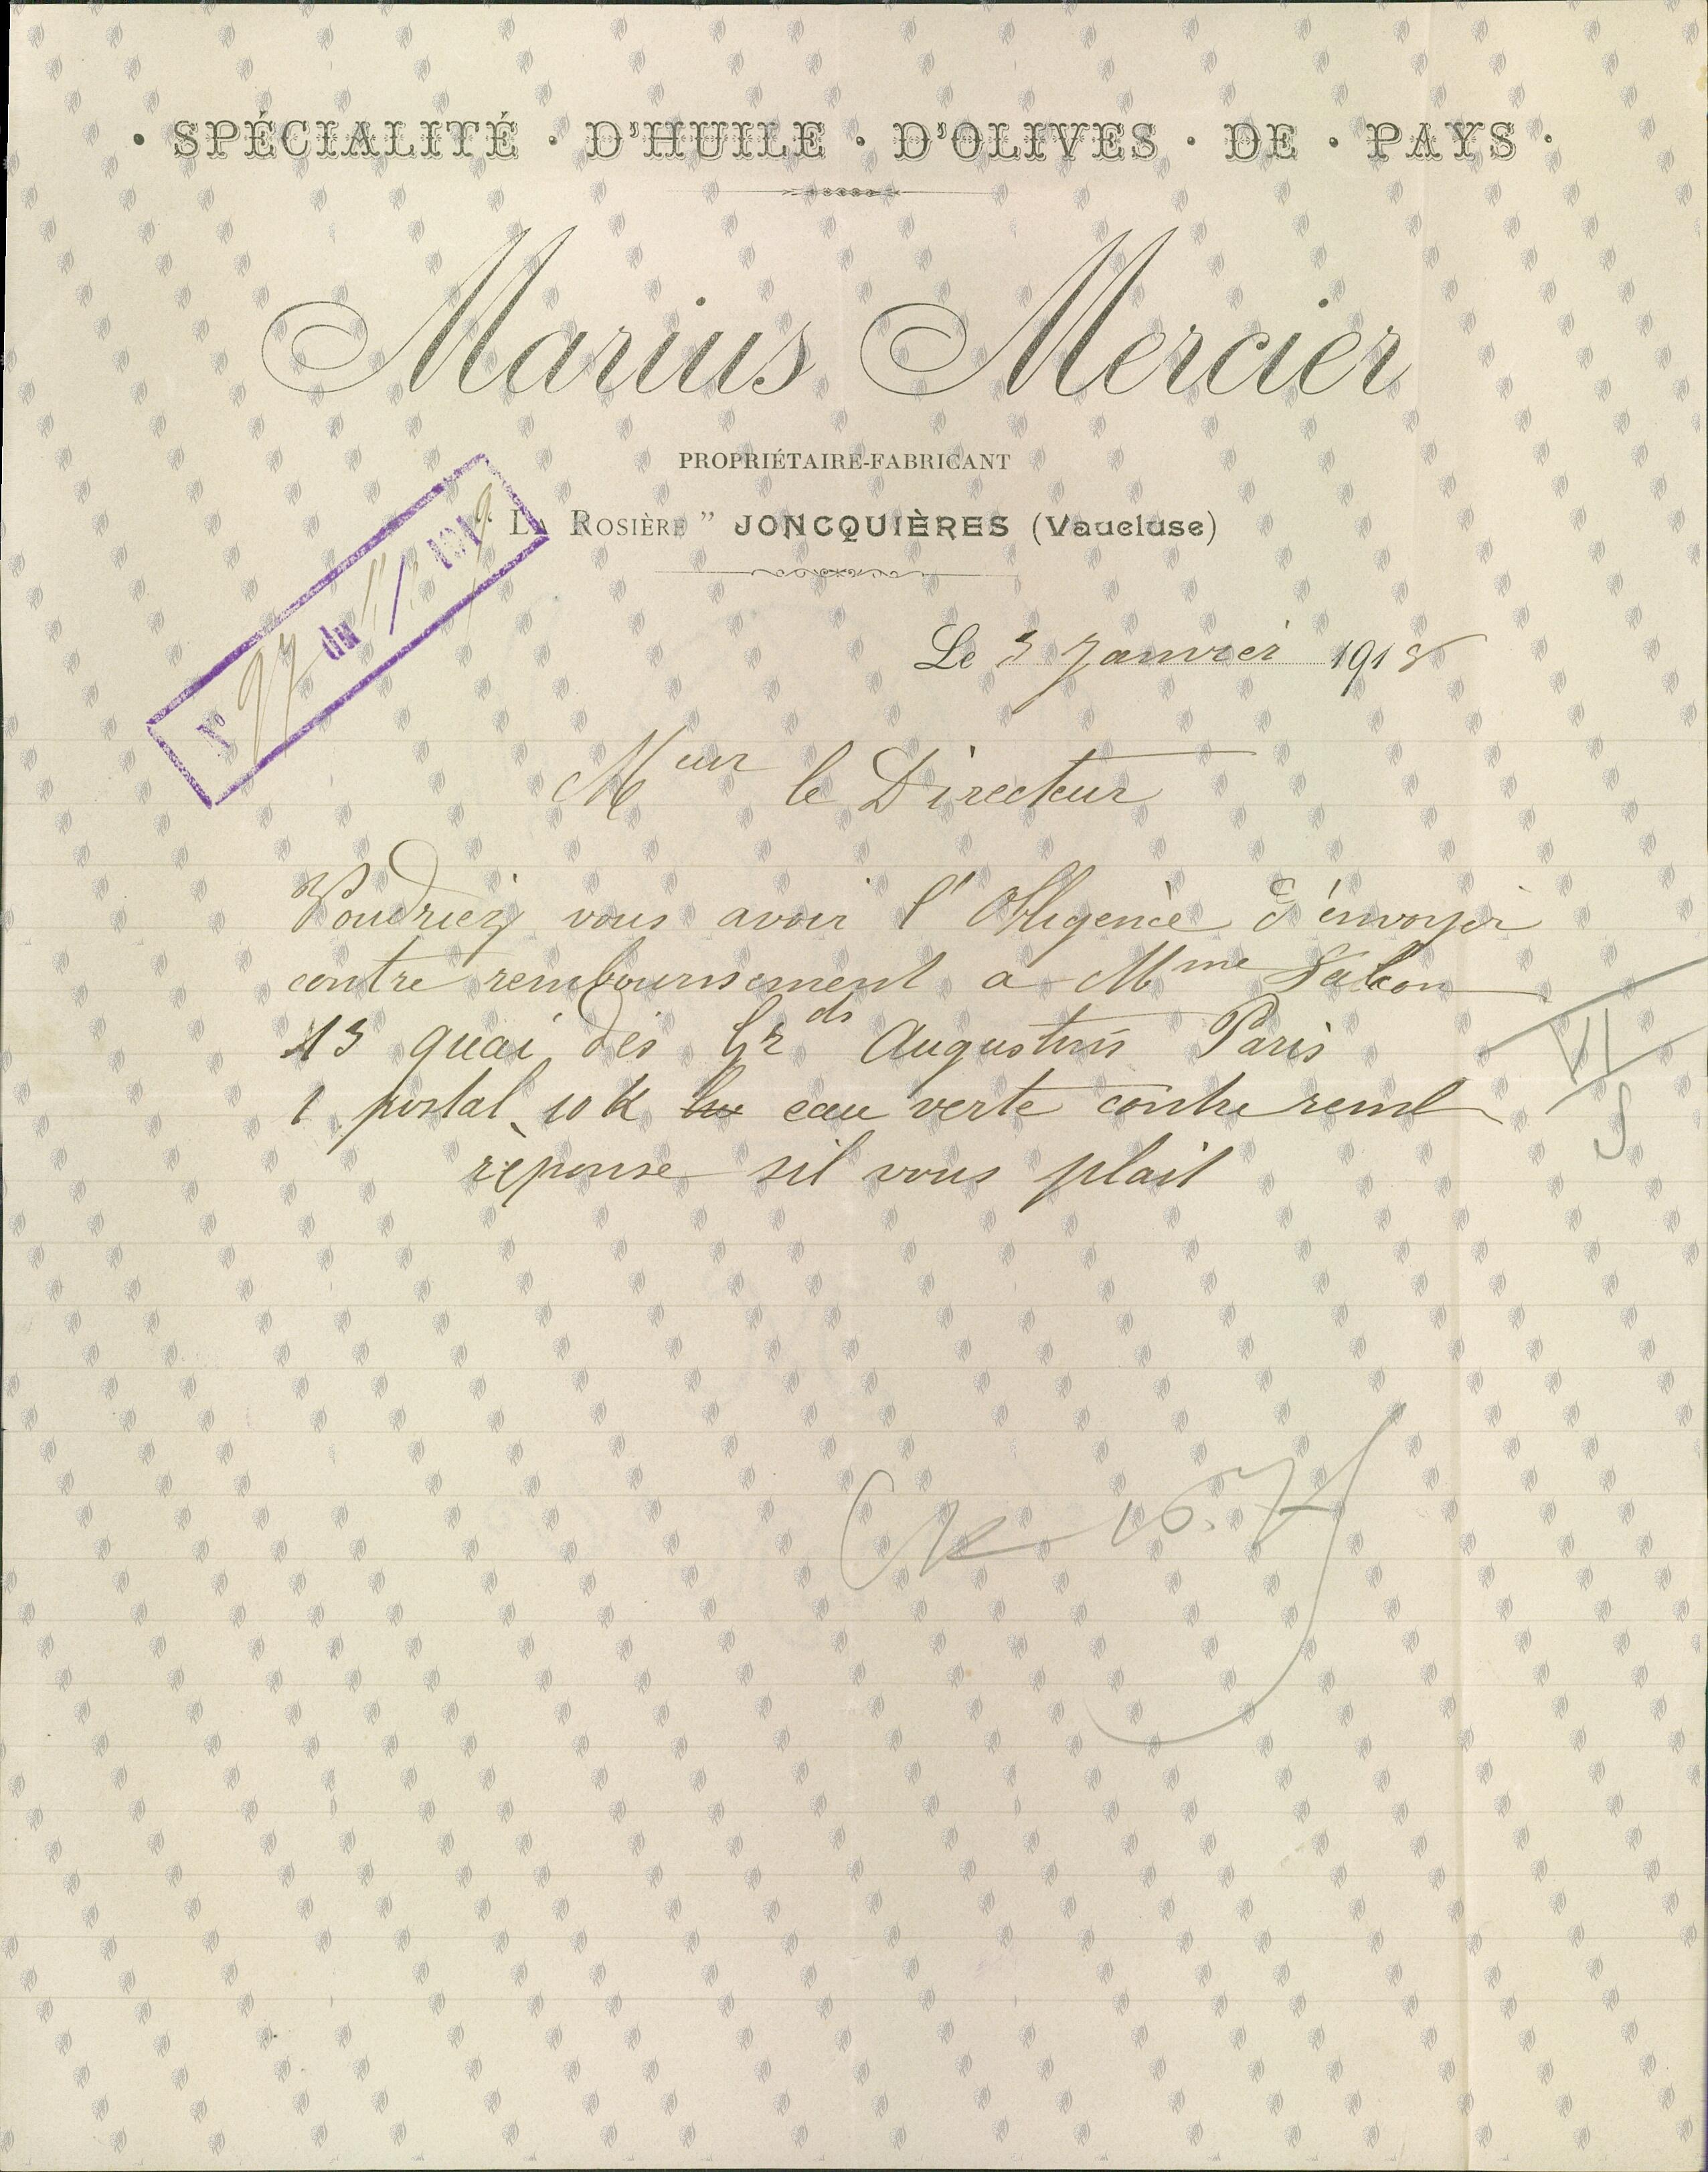 · SPÉCIALITÉ · D'HUILE · D'OLIVES · DE · PAYS ·
Marius Mercier
PROPRIÉTAIRE-FABRICANT
La Rosière " JONCQUIÈRES (Vaucluse)
N° 97 du / 1919
Le 3 Janvier 1918
Meur le Directeur
Voudriez vous avoir l'Obligence d'envoyer
contre remboursement a Mme Falcon
13 quai des Grds Augustins Paris
1 postal 10 K eau verte contre remb
réponse sil vous plait
VI